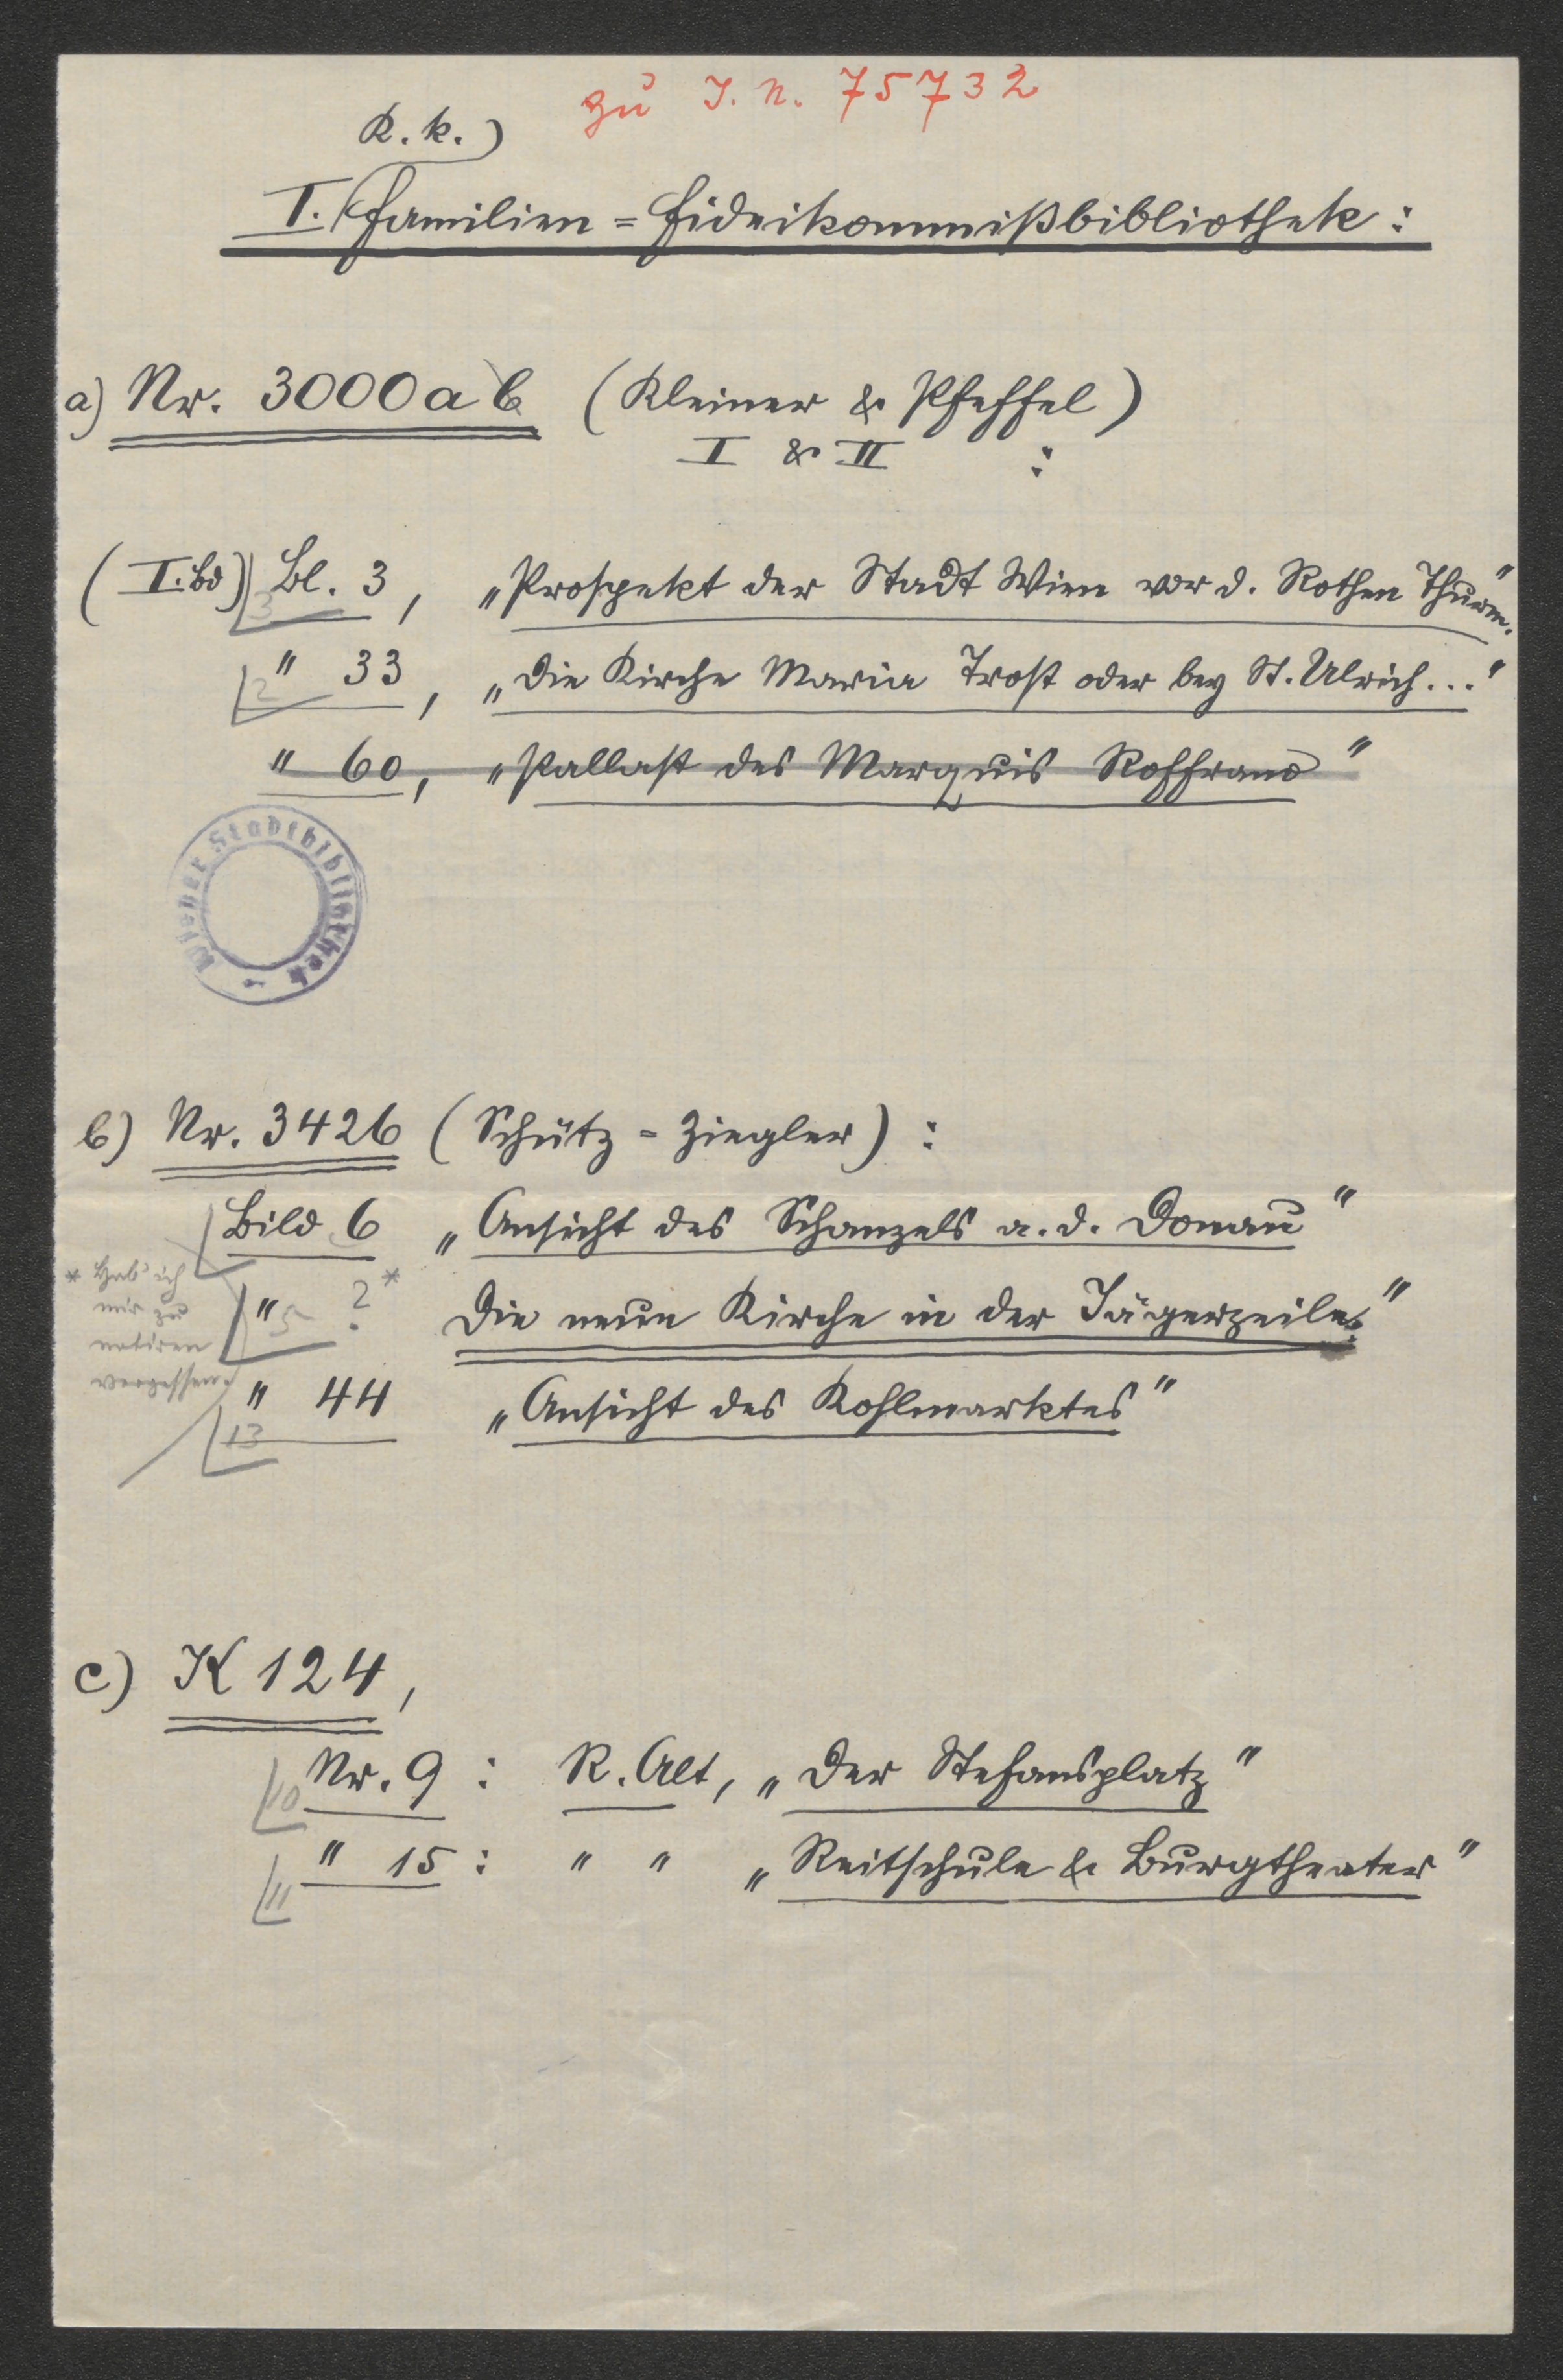 zu I. N. 75732
K. k.)
I. Familien=Fideikommißbibliothek:
a) Nr. 3000 a b (Kleiner & Pfeffel)
I & II :
(I. Bd) Bl. 3, „Prospekt der Stadt Wien vor d. Rothen Thurm."
3
" 33, „Die Kirche Maria Trost oder bey St. Ulrich..."
2
" 60, „Pallast des Marquis Roffrano"
Wiener Stadtbibliothek
b) Nr. 3426 (Schütz=Ziegler):
Bild 6 „Ansicht des Schanzels a. d. Donau"
* Hab' ich
mir zu
notiren
vergessen.
" ?* Die neue Kirche in der Jägerzeile"
5
" 44 „Ansicht des Kohlmarktes"
13
c) K 124,
Nr. 9 : R. Alt, „Der Stefansplatz"
10
" 15 : " " „Reitschule & Burgtheater"
11